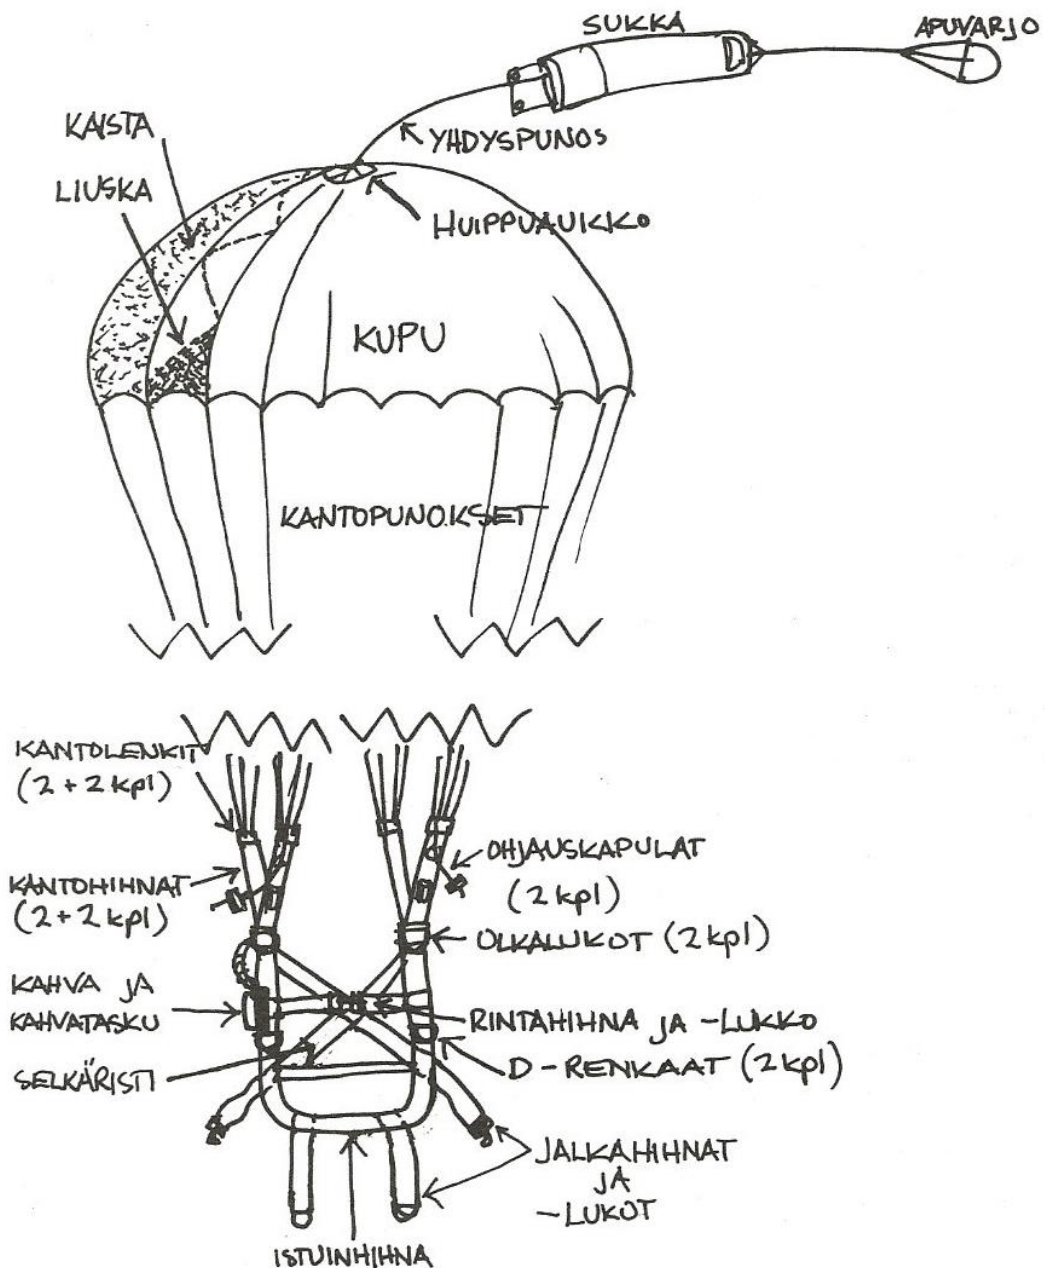 SUKKA
APUVARJO
KAISTA
YHDYSPUNOS
LIUSKA
HUIPPUAUKKO
KUPU
KANTOPUNOKSET
KANTOLENKIT
(2 + 2 kpl)
OHJAUSKAPULAT
(2 kpl)
KANTOHIHNAT
(2 + 2 kpl)
OLKALUKOT (2 kpl)
KAHVA JA
KAHVATASKU
RINTAHIHNA JA -LUKKO
D-RENKAAT (2 kpl)
SELKÄRISTI
JALKAHIHNAT
JA
-LUKOT
ISTUINHIHNA